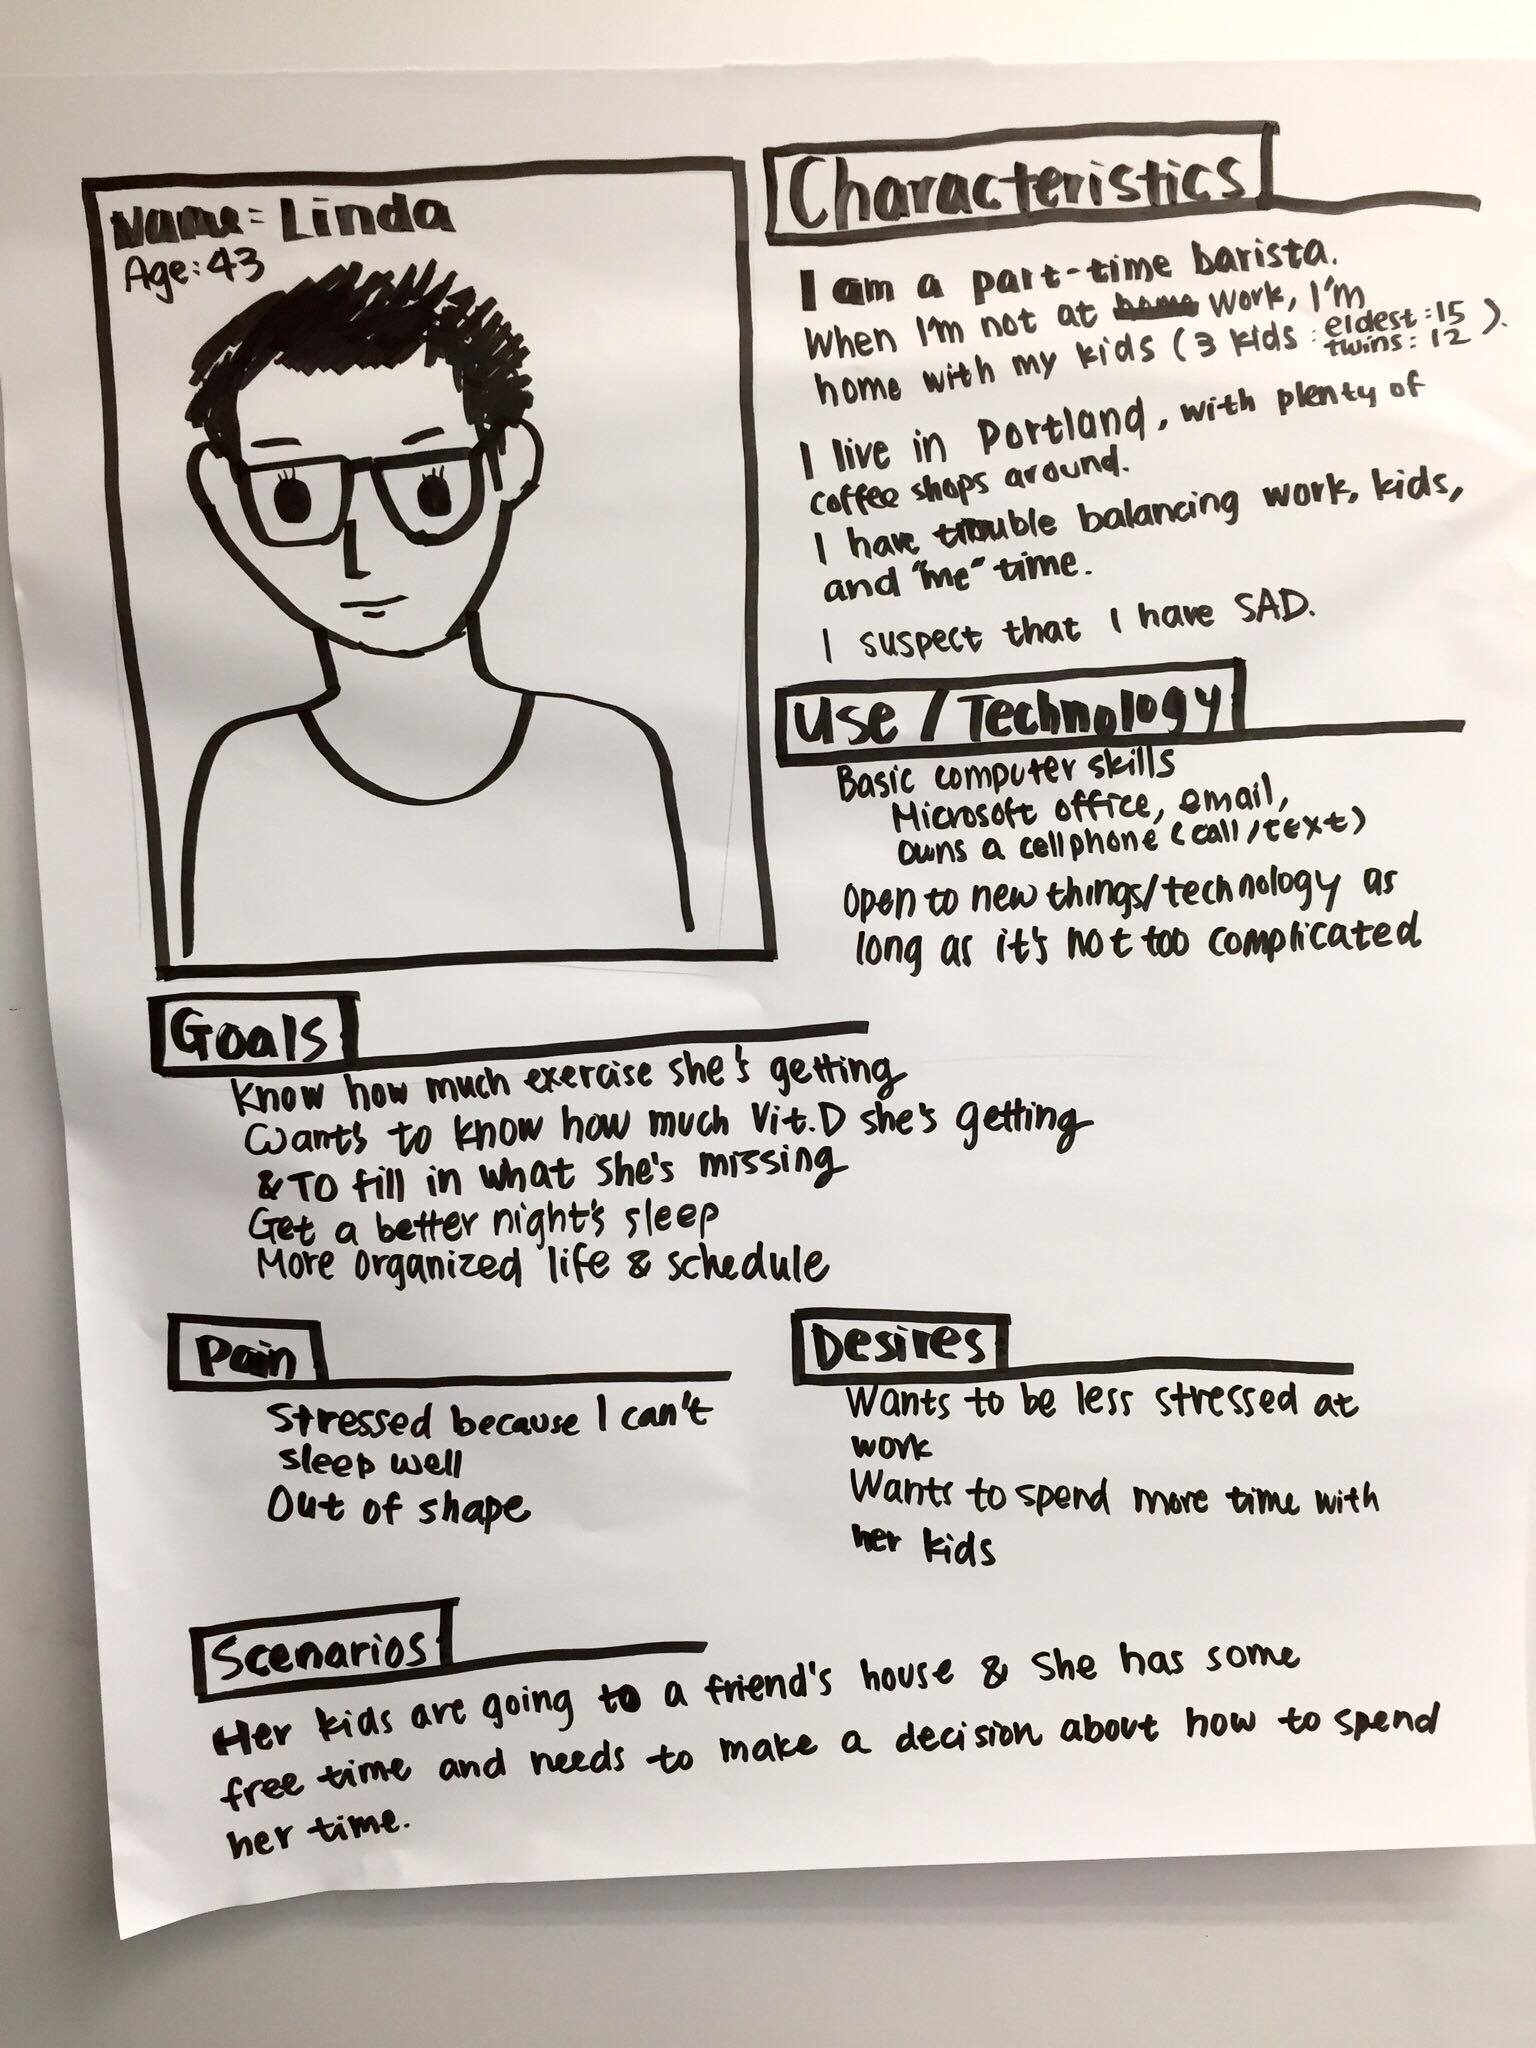 Name: Linda
Age: 43
Characteristics
I am a part-time barista.
When I'm not at work, I'm
home with my kids (3 kids: eldest: 15
twins: 12).
I live in Portland, with plenty of
coffee shops around.
I have trouble balancing work, kids,
and "me" time.
I suspect that I have SAD.
Use / Technology
Basic computer skills
Microsoft office, email,
owns a cellphone (call/text)
Open to new things/technology as
long as it's not too complicated
Goals
Know how much exercise she's getting
Wants to know how much Vit.D she's getting
& To fill in what she's missing
Get a better night's sleep
More organized life & schedule
Pain
Stressed because I can't
sleep well
Out of shape
Desires
Wants to be less stressed at
work
Wants to spend more time with
her kids
Scenarios
Her kids are going to a friend's house & she has some
free time and needs to make a decision about how to spend
her time.